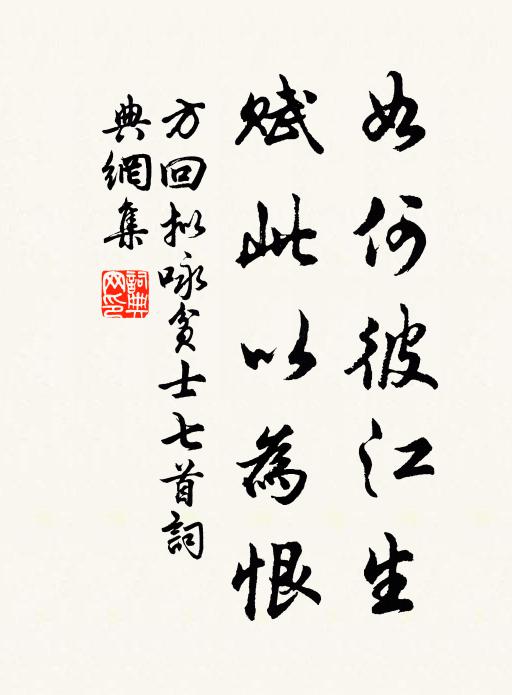 如何彼江生
賦此以為恨
方回拟咏贫士七首詞
典網集
詞典網印